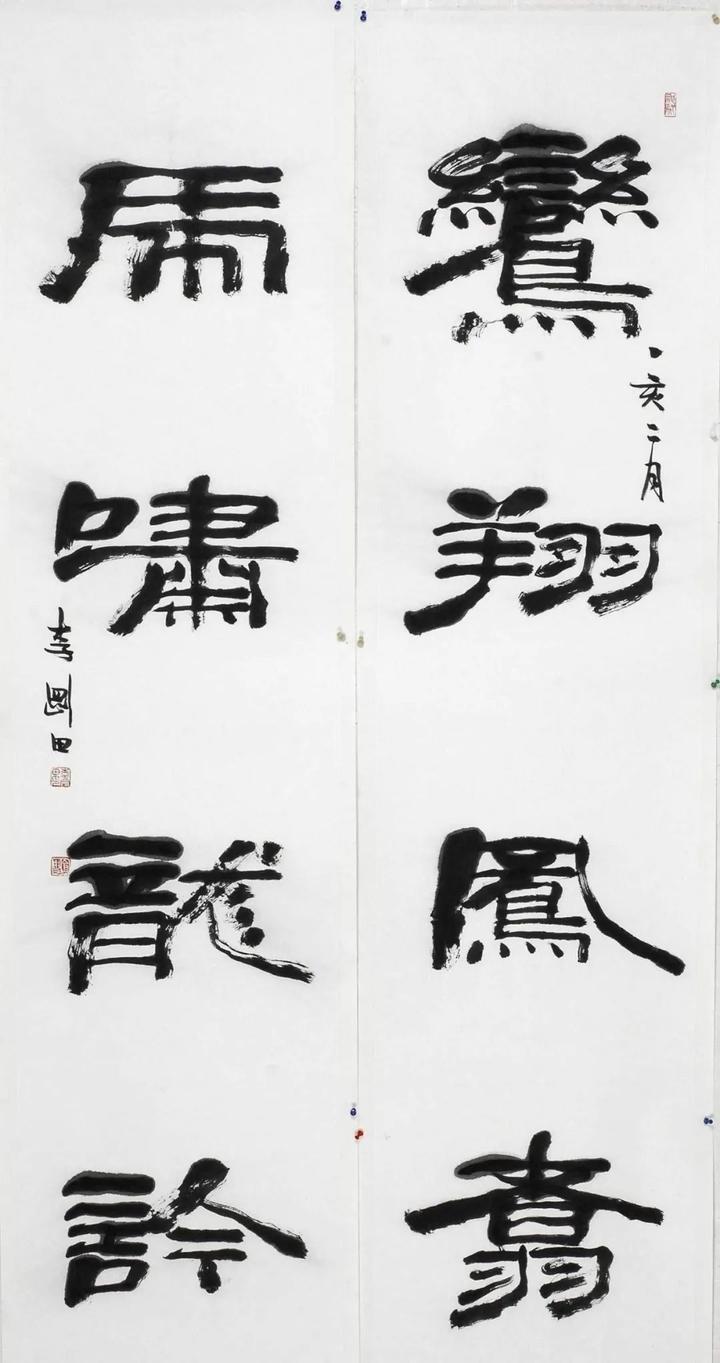 鸞翔鳳翥
亥二月
虎嘯龍訡
李剛田